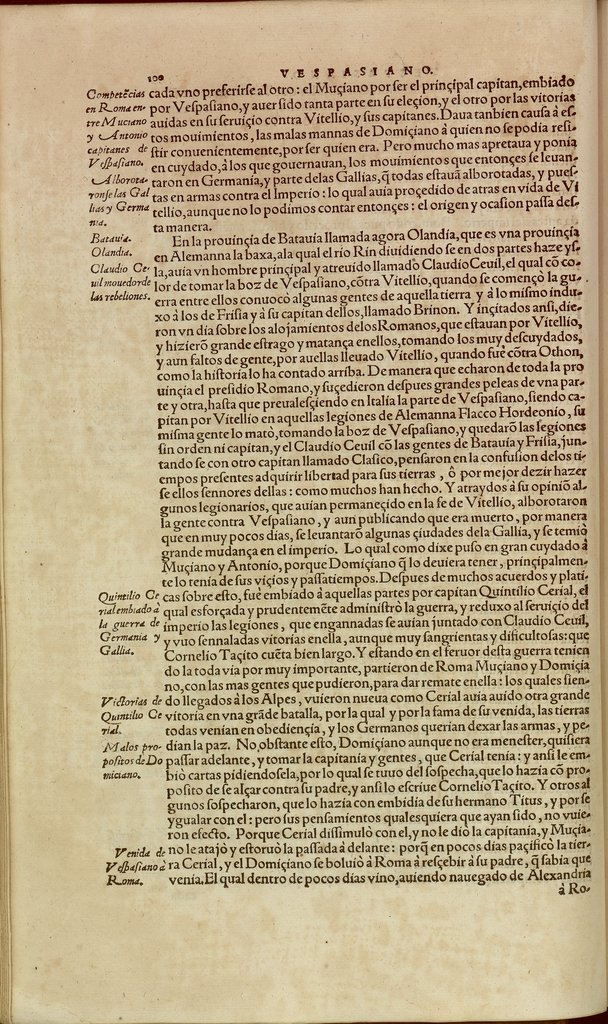 100
VESPASIANO.
Competẽcias
en Roma en-
tre Muciano
y Antonio
capitanes de
Vespasiano.
Alborota-
ronse las Gal
lias y Germa
nia.
Batauia.
Olandia.
Claudio Ce
uil mouedor de
las rebeliones.
cada vno preferirse al otro: el Muçiano por ser el prinçipal capitan, embiado
por Vespasiano, y auer sido tanta parte en su eleçion, y el otro por las vitorias
auidas en su seruiçio contra Vitellio, y sus capitanes. Daua tanbien causa à es-
tos mouimientos, las malas mannas de Domiçiano à quien no se podia resi-
stir conuenientemente, por ser quien era. Pero mucho mas apretaua y ponia
en cuydado, à los que gouernauan, los mouimientos que entonçes se leuan-
taron en Germania, y parte delas Gallias, q̃ todas estauã alborotadas, y pues-
tas en armas contra el Imperio: lo qual auia proçedido de atras en vida de Vi
tellio, aunque no lo podimos contar entonçes: el origen y ocasion passa des-
ta manera.
En la prouinçia de Batauia llamada agora Olandia, que es vna prouinçia
en Alemanna la baxa, ala qual el rio Rin diuidiendo se en dos partes haze ys-
la, auia vn hombre prinçipal y atreuido llamado Claudio Ceuil, el qual cõ co-
lor de tomar la boz de Vespasiano, cõtra Vitellio, quando se començò la gu-
erra entre ellos conuocò algunas gentes de aquella tierra y à lo mismo indu-
xo à los de Frisia y à su capitan dellos, llamado Brinon. Y inçitados ansi, die-
ron vn dia sobre los alojamientos delos Romanos, que estauan por Vitellio,
y hizierõ grande estrago y matança enellos, tomando los muy descuydados,
y aun faltos de gente, por auellas lleuado Vitellio, quando fuè cõtra Othon,
como la historia lo ha contado arriba. De manera que echaron de toda la pro
uinçia el presidio Romano, y suçedieron despues grandes peleas de vna par-
te y otra, hasta que preualesçiendo en Italia la parte de Vespasiano, siendo ca-
pitan por Vitellio en aquellas legiones de Alemanna Flacco Hordeonio, su
misma gente lo matò, tomando la boz de Vespasiano, y quedarõ las legiones
sin orden ni capitan, y el Claudio Ceuil cõ las gentes de Batauia y Frisia, jun-
tando se con otro capitan llamado Clasico, pensaron en la confusion delos ti-
empos presentes adquirir libertad para sus tierras, ô por mejor dezir hazer
se ellos sennores dellas: como muchos han hecho. Y atraydos à su opiniõ al-
gunos legionarios, que auian permaneçido en la fe de Vitellio, alborotaron
la gente contra Vespasiano, y aun publicando que era muerto, por manera
que en muy pocos dias, se leuantarõ algunas çiudades dela Gallia, y se temiò
grande mudança en el imperio. Lo qual como dixe puso en gran cuydado à
Muçiano y Antonio, porque Domiçiano q̃ lo deuiera tener, prinçipalmen-
te lo tenia de sus viçios y passatiempos. Despues de muchos acuerdos y plati-
Quintilio Ce
rial embiado à
la guerra de
Germania y
Gallia.
cas sobre esto, fuè embiado à aquellas partes por capitan Quintilio Cerial, el
qual esforçada y prudentemẽte administrò la guerra, y reduxo al seruiçio del
imperio las legiones, que engannadas se auian juntado con Claudio Ceuil,
y vuo sennaladas vitorias enella, aunque muy sangrientas y dificultosas: que
Cornelio Taçito cuẽta bien largo. Y estando en el feruor desta guerra tenien
do la toda via por muy importante, partieron de Roma Muçiano y Domiçia
no, con las mas gentes que pudieron, para dar remate enella: los quales sien-
Victorias de
Quintilio Ce
rial.
Malos pro-
positos de Do
miciano.
do llegados à los Alpes, vuieron nueua como Cerial auia auido otra grande
vitoria en vna grãde batalla, por la qual y por la fama de su venida, las tierras
todas venian en obediençia, y los Germanos querian dexar las armas, y pe-
dian la paz. No, obstante esto, Domiçiano aunque no era menester, quisiera
passar adelante, y tomar la capitania y gentes, que Cerial tenia: y ansi le em-
biò cartas pidiendosela, por lo qual se tuuo del sospecha, que lo hazia cõ pro-
posito de se alçar contra su padre, y ansi lo escriue Cornelio Taçito. Y otros al
gunos sospecharon, que lo hazia con embidia de su hermano Titus, y por se
ygualar con el: pero sus pensamientos qualesquiera que ayan sido, no vuie-
ron efecto. Porque Cerial dissimulò con el, y no le diò la capitania, y Muçia-
Venida de
Vespasiano à
Roma.
no le atajò y estoruò la passada à delante: porq̃ en pocos dias paçificò la tier-
ra Cerial, y el Domiçiano se boluiò à Roma à resçebir à su padre, q̃ sabia que
venia. El qual dentro de pocos dias vino, auiendo nauegado de Alexandria
à Ro-